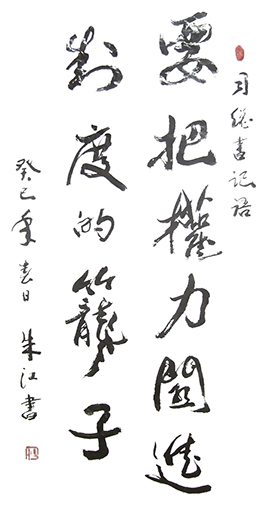 习總書记语
要把權力關進
制度的籠子
癸巳年春日 朱江書